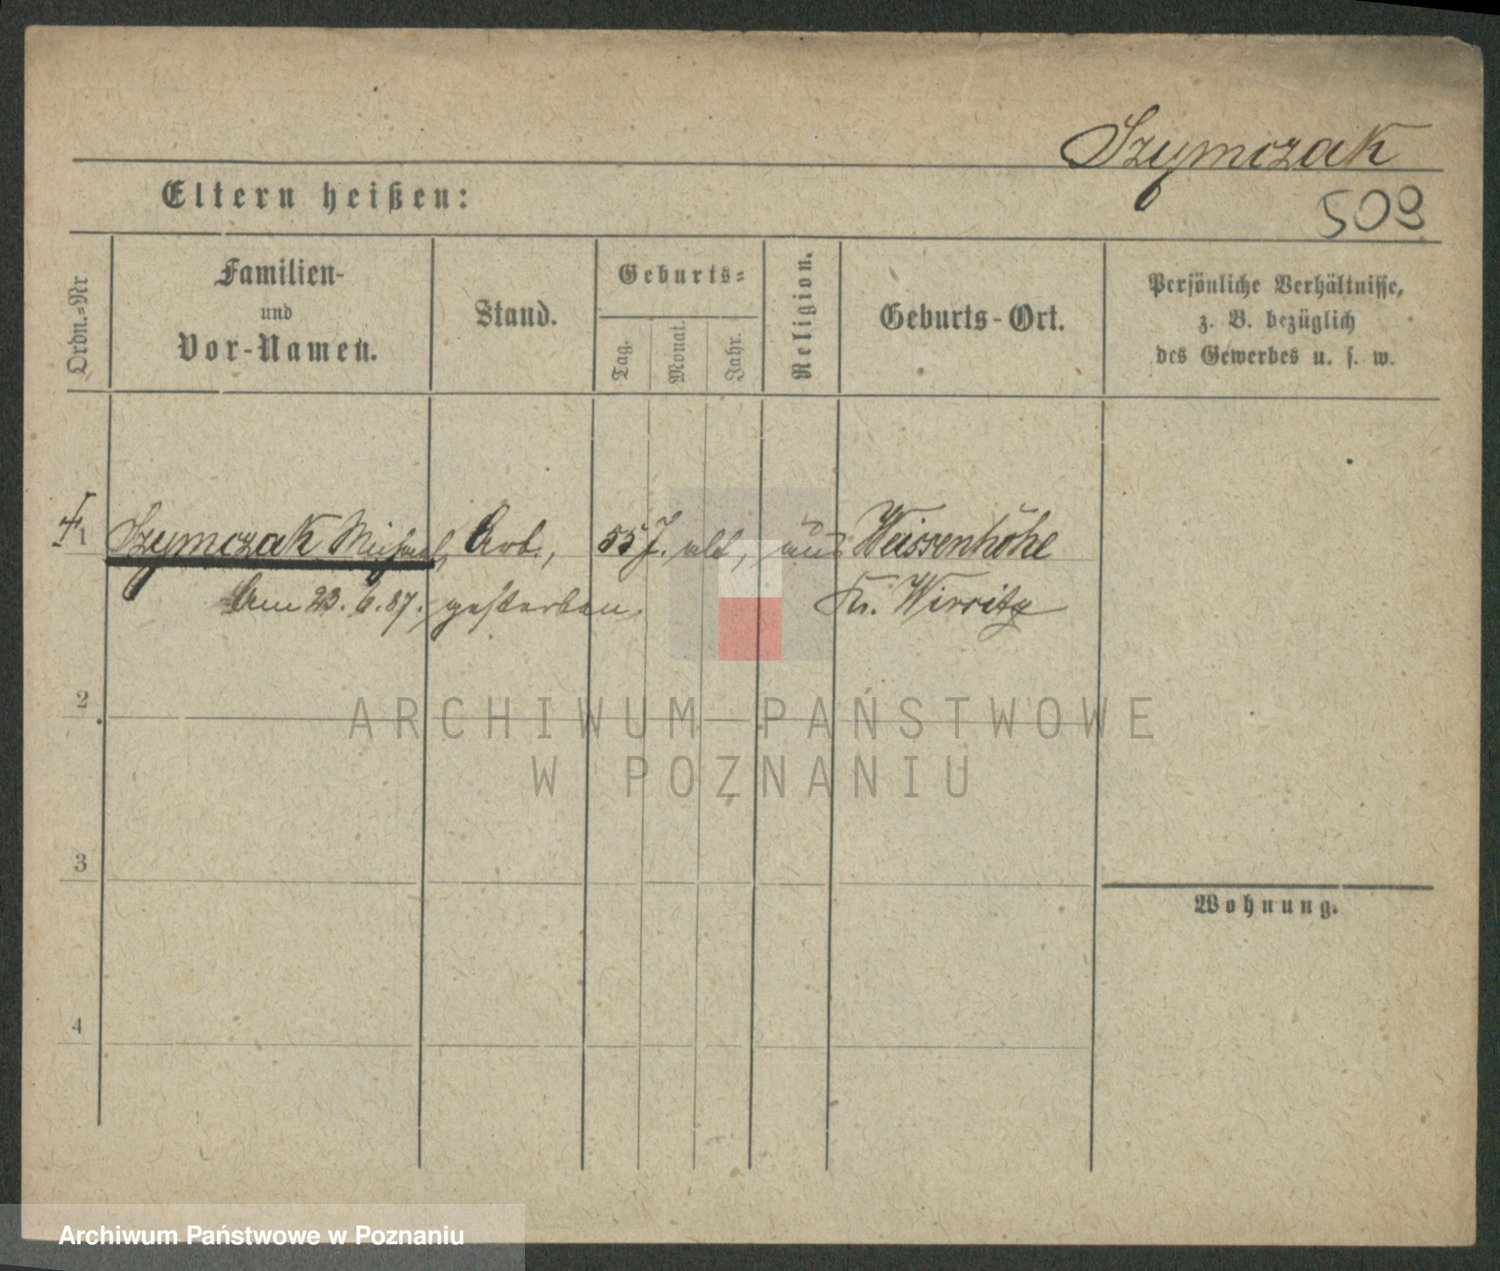 Szymczak
Eltern heißen:
509
Ordn.-Nr
Familien-
und
Vor-Namen.
Stand.
Geburts-
Tag.
Monat.
Jahr.
Religion.
Geburts-Ort.
Persönliche Verhältnisse,
z. B. bezüglich
des Gewerbes u. s. w.
1 Szymczak Michael, Arb., 55 J. alt, aus Weissenhöhe
Am 23. 6. 87. gestorben. Kr. Wirsitz
2
ARCHIWUM PAŃSTWOWE
W POZNANIU
3
Wohnung.
4
Archiwum Państwowe w Poznaniu